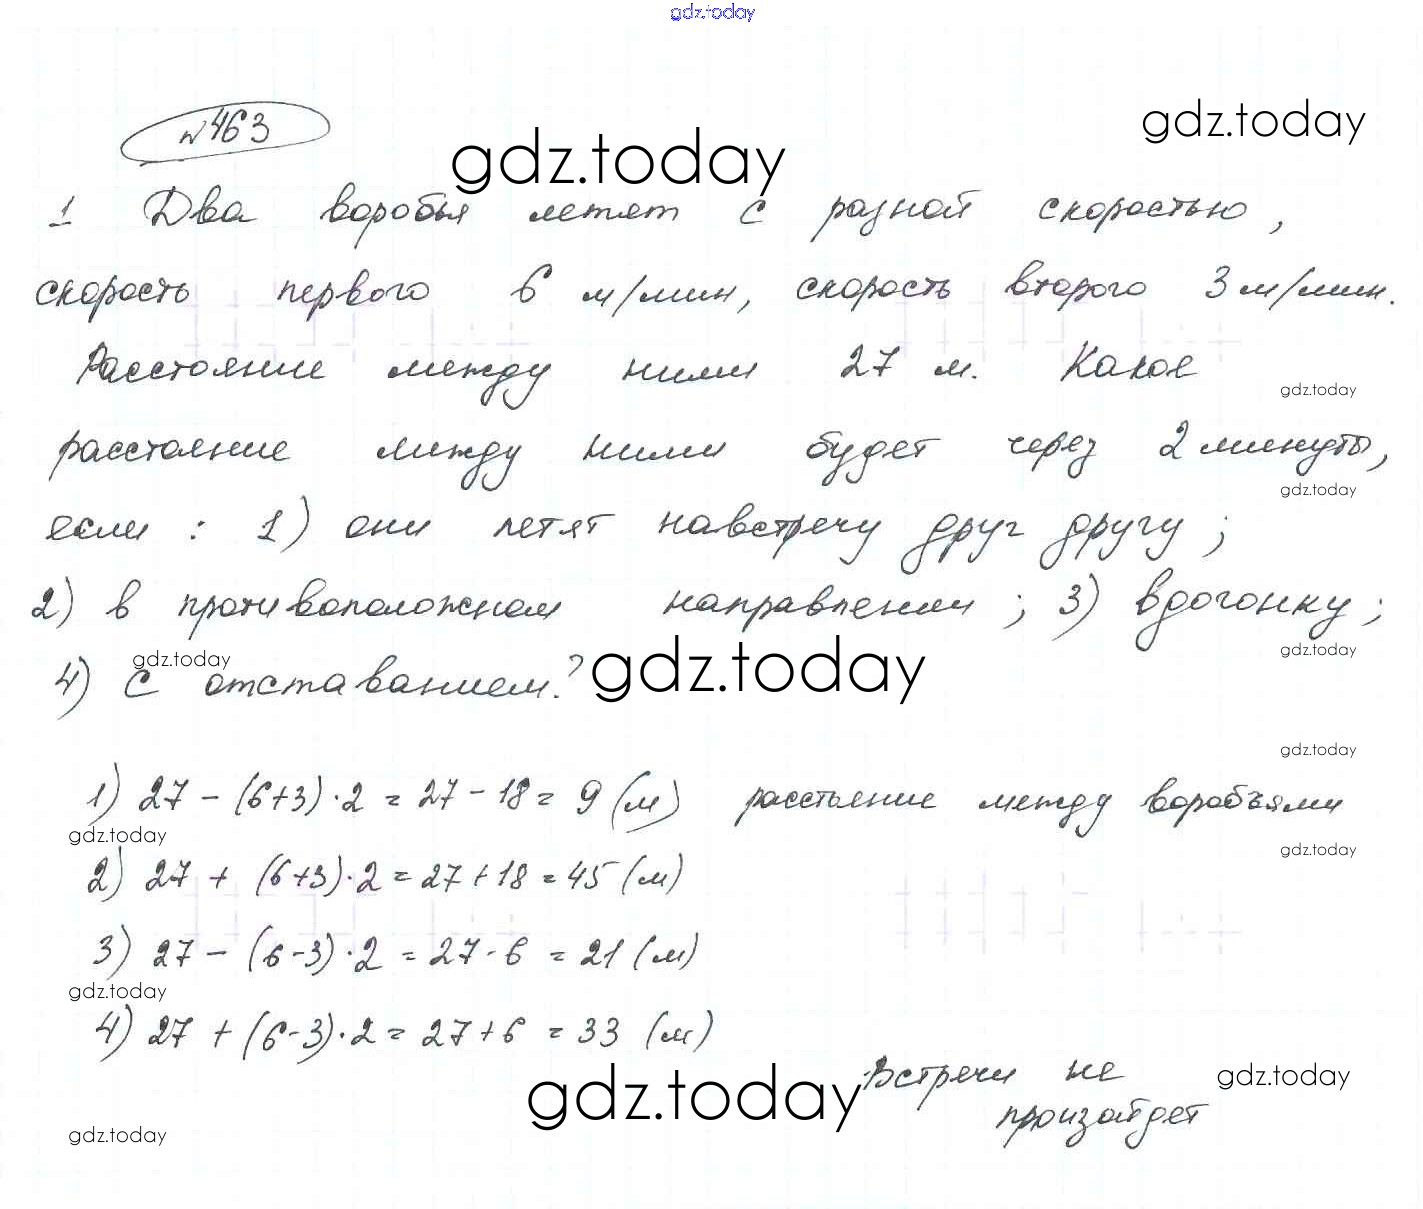 gdz.today
№463
gdz.today
gdz.today
1 Два воробья летят с разной скоростью,
скорость первого 6 м/мин, скорость второго 3 м/мин.
Расстояние между ними 27 м. Какое
gdz.today
расстояние между ними будет через 2 минуты,
gdz.today
если : 1) они летят навстречу друг другу ;
2) в противоположном направлении ; 3) вдогонку ;
gdz.today
gdz.today
gdz.today
4) с отставанием.?
gdz.today
1) 27 - (6+3)·2 = 27 - 18 = 9 (м) расстояние между воробьями
gdz.today
gdz.today
2) 27 + (6+3)·2 = 27 + 18 = 45 (м)
3) 27 - (6-3)·2 = 27 - 6 = 21 (м)
gdz.today
4) 27 + (6-3)·2 = 27 + 6 = 33 (м)
gdz.today
Встречи не
gdz.today
произойдет
gdz.today